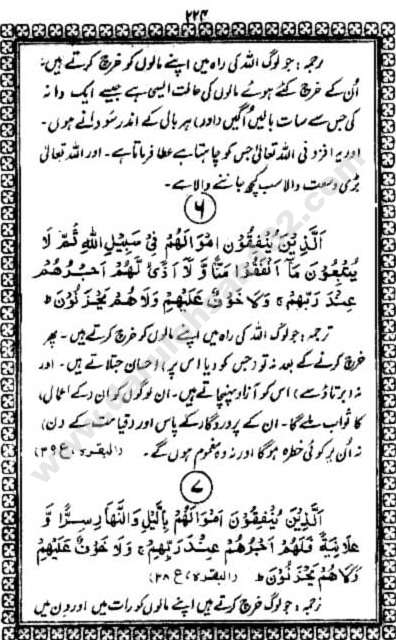 ۲۲۴
ترجمہ: جو لوگ اللہ کی راہ میں اپنے مالوں کو خرچ کرتے ہیں،
اُن کے خرچ کئے ہوئے مالوں کی حالت ایسی ہے جیسے ایک دانہ
کی جس سے سات بالیں اُگیں (اور) ہر بالی کے اندر سو دانے ہوں۔
اور یہ افزونی اللہ تعالیٰ جس کو چاہتا ہے عطا فرماتا ہے۔ اور اللہ تعالیٰ
بڑی وسعت والا سب کچھ جاننے والا ہے۔
۶
اَلَّذِيْنَ يُنْفِقُوْنَ اَمْوَالَهُمْ فِيْ سَبِيْلِ اللّٰهِ ثُمَّ لَا
يُتْبِعُوْنَ مَآ اَنْفَقُوْا مَنًّا وَّلَآ اَذًى لَّهُمْ اَجْرُهُمْ
عِنْدَ رَبِّهِمْ ۚ وَلَا خَوْفٌ عَلَيْهِمْ وَلَا هُمْ يَحْزَنُوْنَ ط
ترجمہ: جو لوگ اللہ کی راہ میں اپنے مالوں کو خرچ کرتے ہیں۔ پھر
خرچ کرنے کے بعد نہ تو (جس کو دیا اس پر) احسان جتلاتے ہیں۔ اور
نہ (برتاؤ سے) اس کو آزار پہنچاتے ہیں۔ ان لوگوں کو ان کے اعمال،
کا ثواب ملے گا۔ ان کے پروردگار کے پاس اور (قیامت کے دن)
نہ اُن پر کوئی خطرہ ہوگا اور نہ وہ مغموم ہوں گے۔ (البقرہ، ع ۳۶)
۷
اَلَّذِيْنَ يُنْفِقُوْنَ اَمْوَالَهُمْ بِالَّيْلِ وَالنَّهَارِ سِرًّا وَّ
عَلَانِيَةً فَلَهُمْ اَجْرُهُمْ عِنْدَ رَبِّهِمْ ۚ وَلَا خَوْفٌ عَلَيْهِمْ
وَلَا هُمْ يَحْزَنُوْنَ ط (البقرہ، ع ۳۸)
ترجمہ: جو لوگ خرچ کرتے ہیں اپنے مالوں کو رات میں اور دن میں